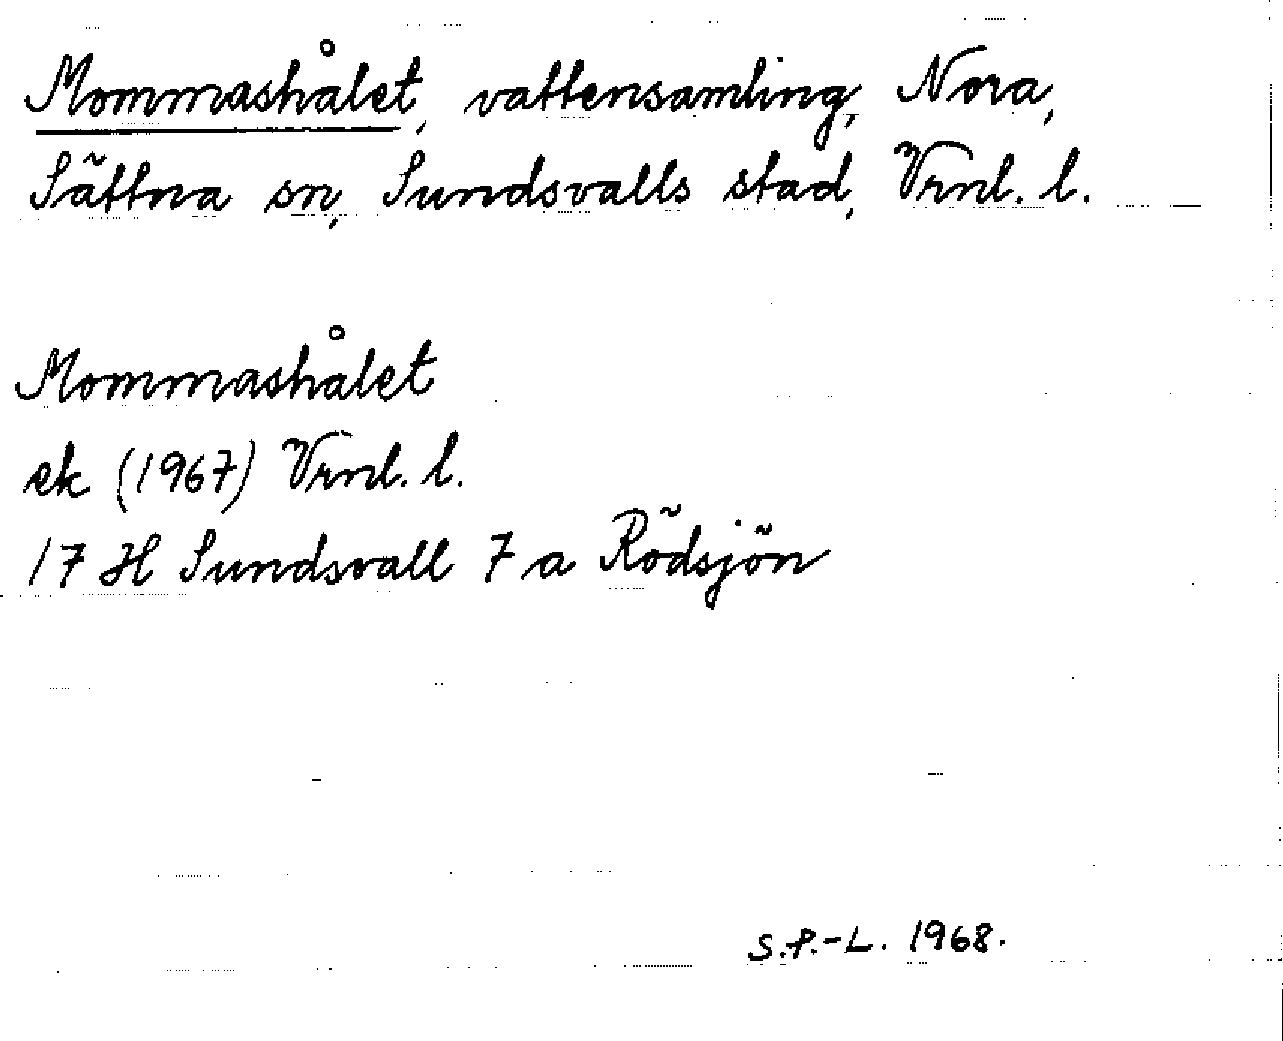 Mommashålet, vattensamling, Nora,
Sättna sn, Sundsvalls stad, Vrnl. l.
Mommashålet
ek (1967) Vrnl. l.
17 H Sundsvall 7 a Rödsjön
S.P.-L. 1968.